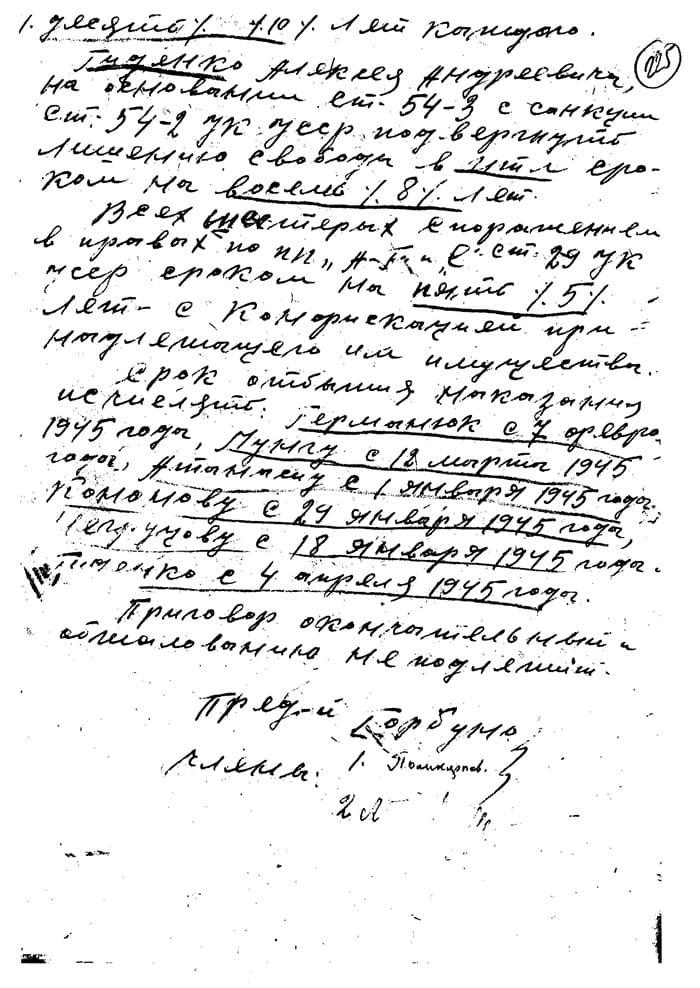 1. десять /. /.10/. лет каждого.
225
Гиденко Алексея Андреевича,
на основании ст. 54-3 с санкции
ст. 54-2 УК УССР подвергнуть
лишению свободы в ИТЛ сро-
ком на восемь /.8/. лет.
Всех шестерых с поражением
в правах по пп. „А-Г" и „Е" ст. 29 УК
УССР сроком на пять /.5/.
лет - с конфискацией при-
надлежащего им имущества.
Срок отбытия наказания
исчислять: Германюк с 7 февра-
1945 года, Лунгу с 18 марта 1945
года, Атанасиу с 1 января 1945 года,
Кононову с 29 января 1945 года,
с 18 января 1945 года.
Гиденко с 4 апреля 1945 года.
Приговор окончательный и
обжалованию не подлежит.
Пред-й Горбуно
члены: 1. Поликарпов.
2